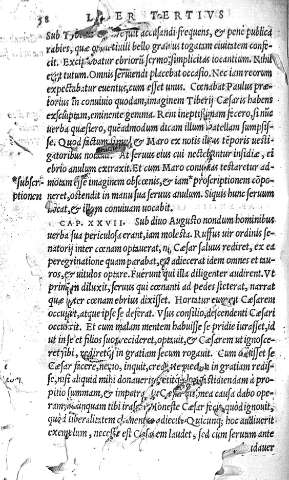 38 LIBER TERTIUS
Sub Tyberio fuit accusandi frequens, & penè publica
rabies, quæ omni ciuili bello grauius togatam ciuitatem confe-
cit. Excipiebatur ebriorũ sermo, simplicitas iocantium. Nihil
erat tutum. Omnis sæuiendi placebat occasio. Nec iam reorum
expectabatur euentus, cum esset unus. Cœnabat Paulus præ-
torius in conuiuio quodam, imaginem Tiberij Cæsaris habens
exculptam, eminente gemma. Rem ineptissimam fecero, si nũc
uerba quæsiero, quẽadmodum dicam illum matellam sumpsis-
se. Quod factum simul & Maro ex notis illius tẽporis uesti-
gatoribus notauit. At seruus eius cui nectebantur insidiæ, ei
ebrio anulum extraxit. Et cum Maro conuiuas testaretur ad-
motam esse imaginem obscœnis, & iam *proscriptionem compo-
*subscri-
ptionem
neret, ostendit in manu sua seruus anulum. Siquis hunc seruum
uocat, & illum conuiuam uocabit.
CAP. XXVII. Sub diuo Augusto nondum hominibus
uerba sua periculosa erant, iam molesta. Ruffus uir ordinis se-
natorij inter cœnam optauerat, ne Cæsar saluus rediret, ex ea
peregrinatione quam parabat, & adiecerat idem omnes et tau-
ros, & uitulos optare. Fuerunt qui illa diligenter audirent. Vt
primum diluxit, seruus qui cœnanti ad pedes steterat, narrat
quæ inter cœnam ebrius dixisset. Hortatur eum ut Cæsarem
occupet, atque ipse se deferat. Vsus consilio, descendenti Cæsari
occurrit. Et cum malam mentem habuisse se pridie iurasset, id
ut in se et filios suos recideret, optauit, & Cæsarem ut ignosce-
ret sibi, rediretque in gratiam secum rogauit. Cum dixisset se
Cæsar facere, nemo, inquit, credet te mecum in gratiam redis-
se, nisi aliquid mihi donaueris, petiitque non fastidiendam à pro-
pitio summam, & impetrauit. Cæsar ait, mea causa dabo ope-
ram, ne unquam tibi irascar. Honeste Cæsar fecit, quod ignouit,
quod liberalitatem clementiæ adiecit. Quicunque hoc audiuerit
exemplum, necesse est Cæsarem laudet, sed cum seruum ante
laudauer